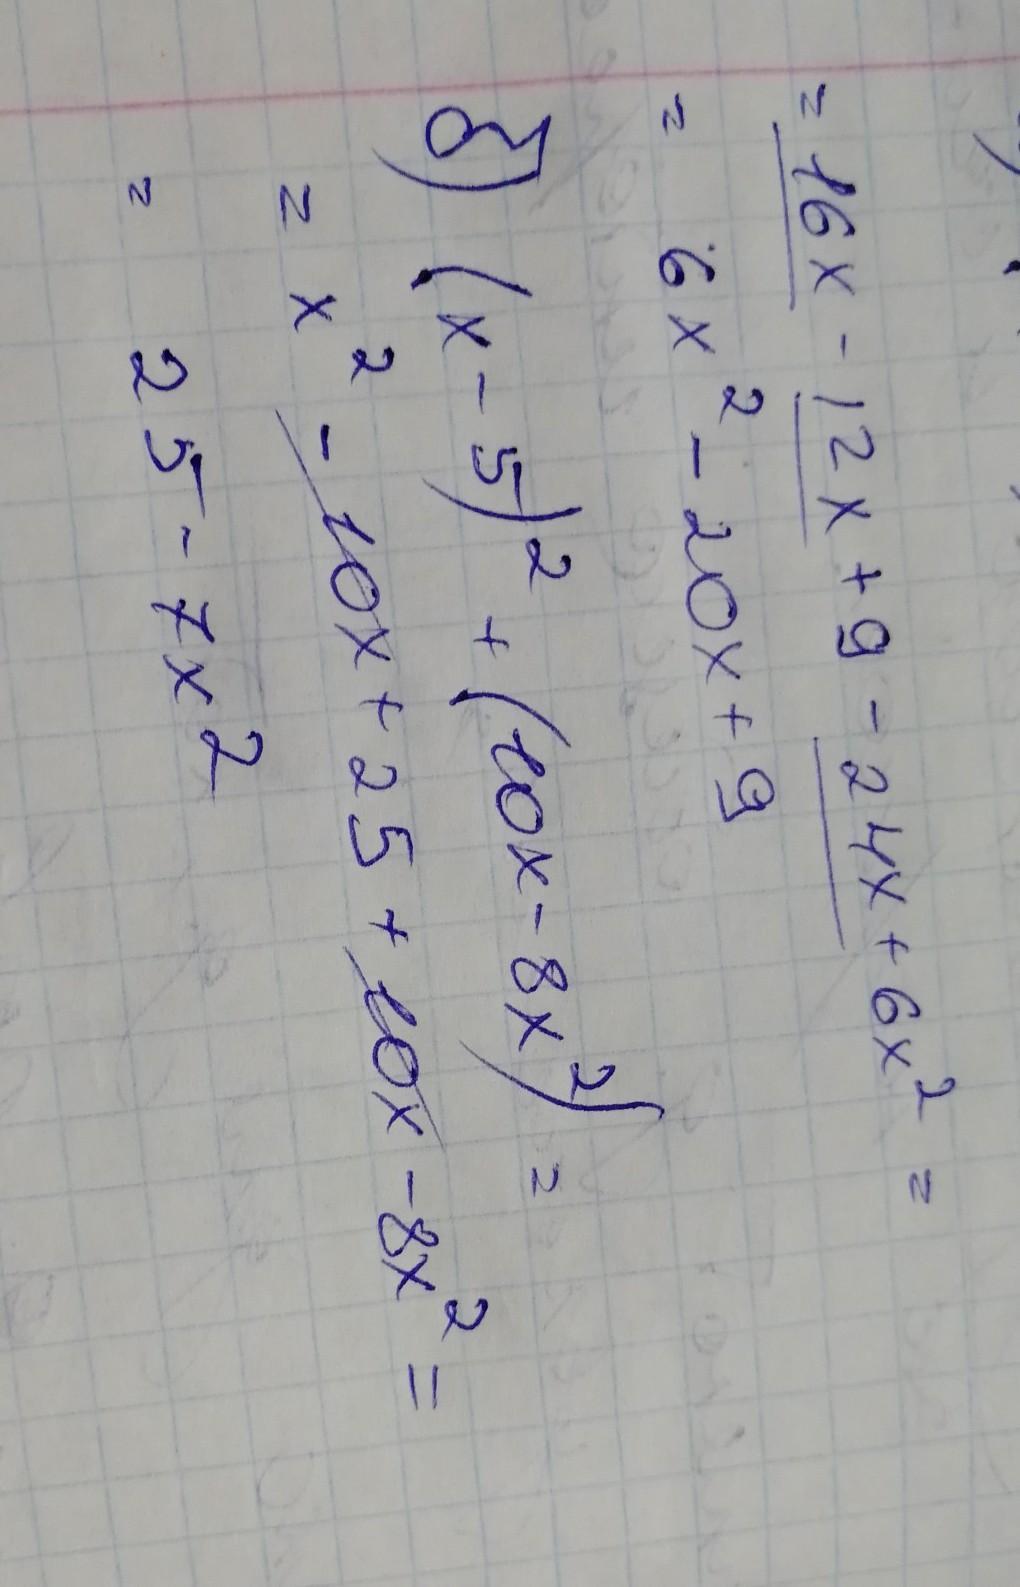 = 16x - 12x + 9 - 24x + 6x² =
= 6x² - 20x + 9
б) (x - 5)² + (10x - 8x²) =
= x² - 10x + 25 + 10x - 8x² =
= 25 - 7x²